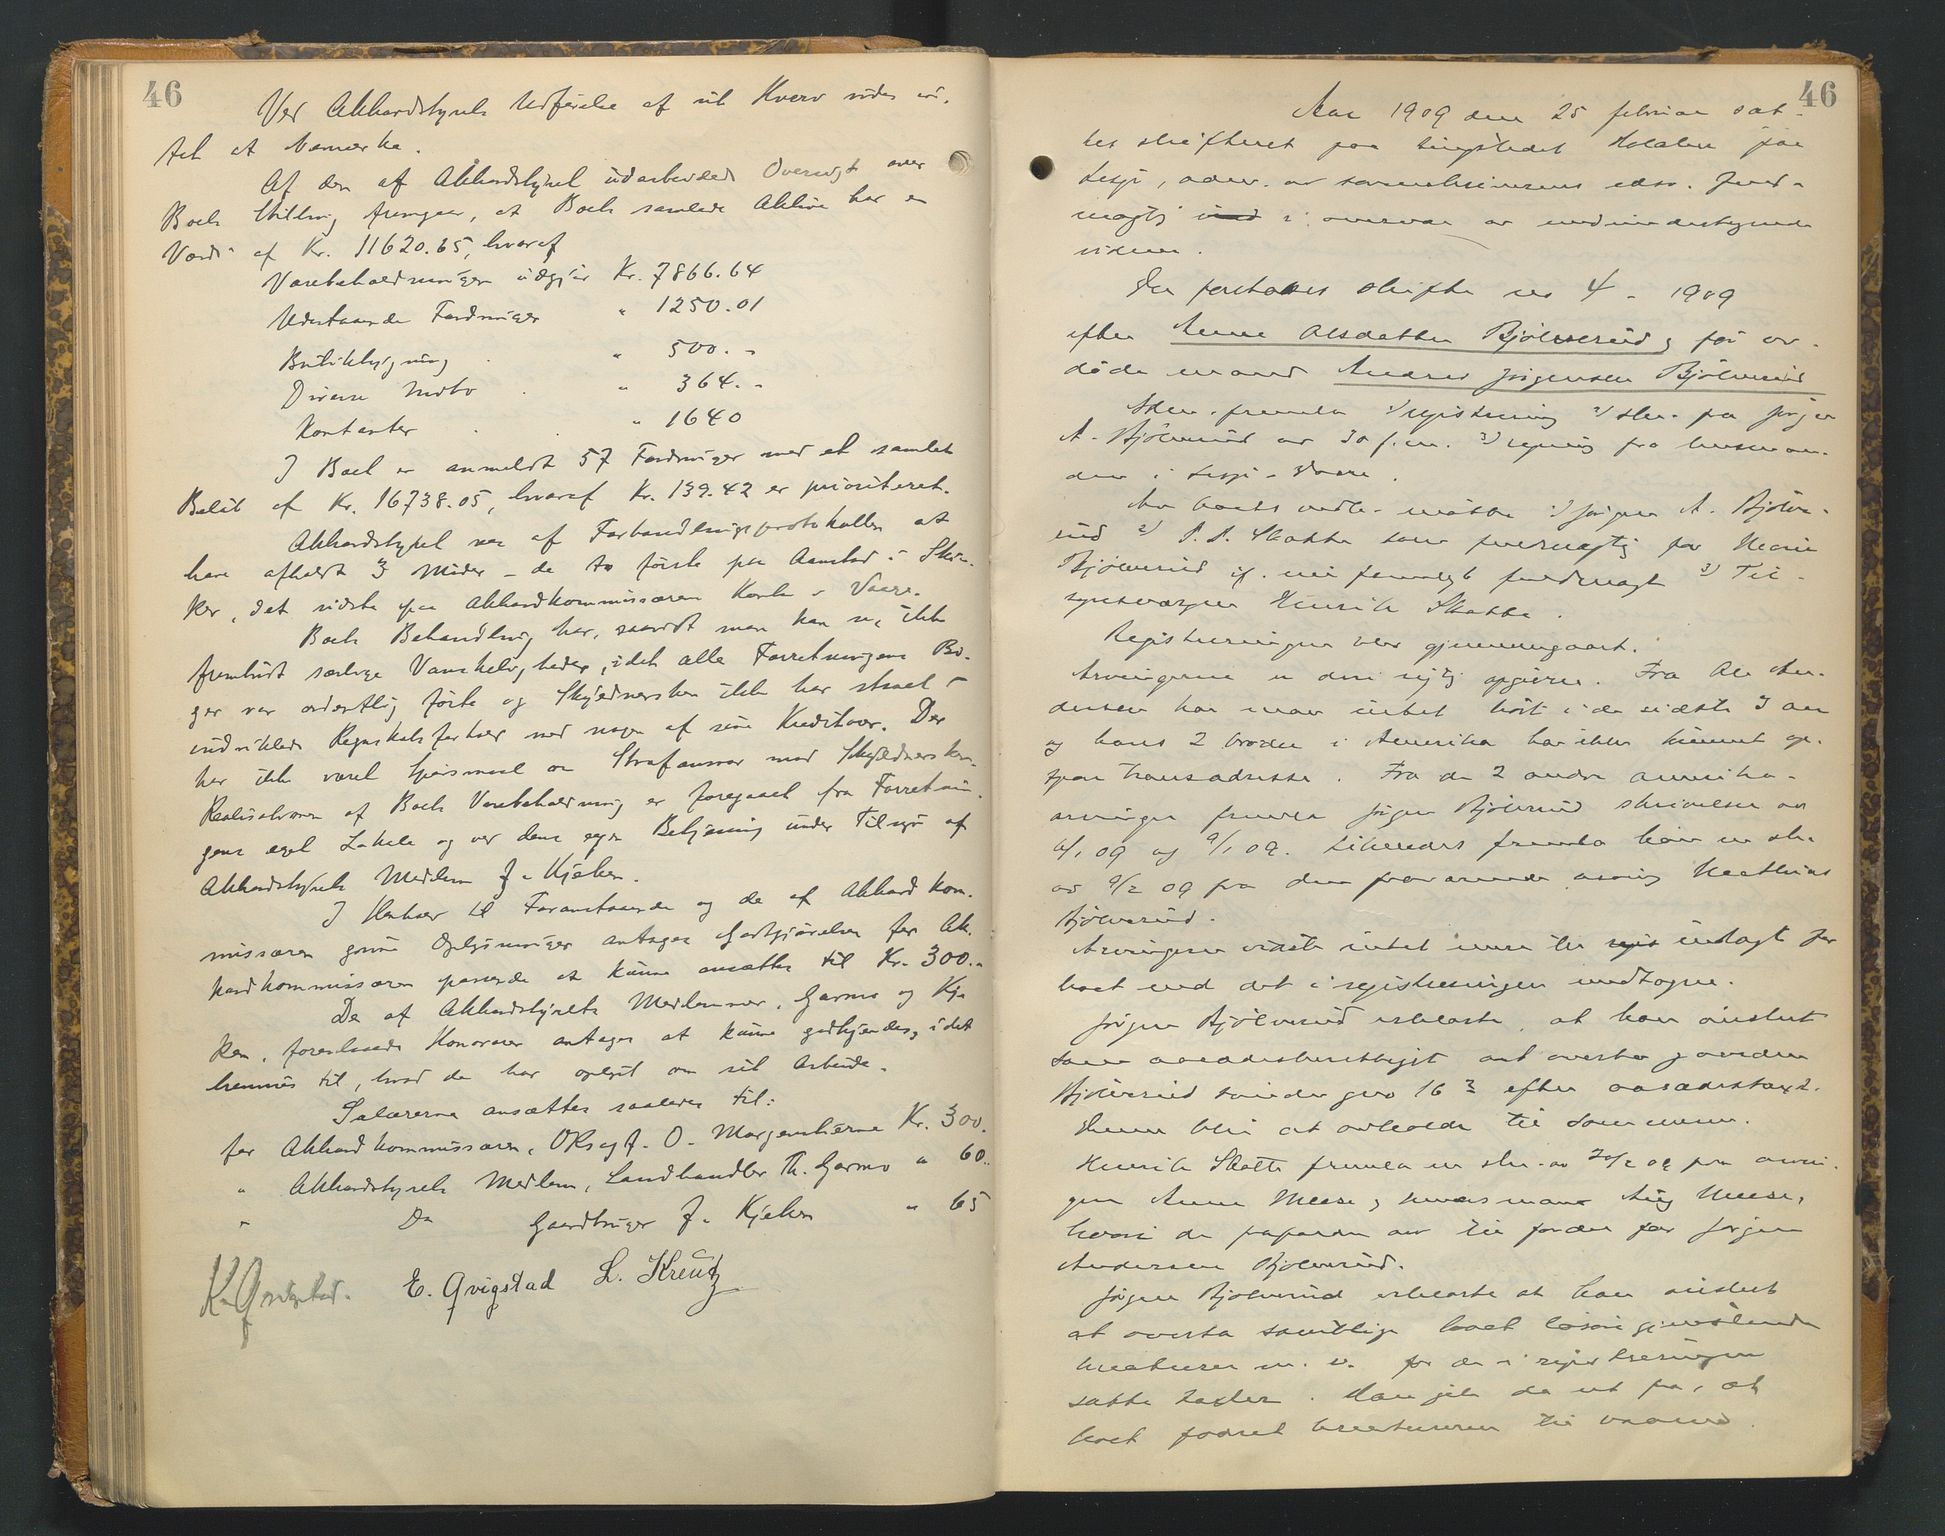 46
Ved Akkordstyrets Udførelse af sit Hverv vides in-
tet at bemærke.
Af den af Akkordstyret udarbeidede Oversigt over
Boets Stilling fremgaar, at Boets samlede Aktiva har en
Værdi af Kr. 11620.65, hvoraf
Varebeholdningen udgjør Kr. 7866.64
Udestaaende Fordringer " 1250.01
Butikbygning " 500.-
Diverse Indbo " 364.-
Kontanter " 1640
I Boet er anmeldt 57 Fordringer med et samlet
Beløb af Kr. 16738.05, hvoraf Kr. 139.42 er prioriteret.
Akkordstyret sees af Forhandlingsprotokollen at
have afholdt 3 Møder - de to første paa Aanstad i Skia-
ker, det sidste paa Akkordkommissærens Kontor i Vaage.
Boets Behandling har, saavidt man kan se, ikke
frembudt særlige Vanskeligheder, idet alle Forretningens Bø-
ger var ordentlig førte og Skyldnersken ikke har staaet i
indviklede Regnskabsforhold med nogen af sine Kreditorer. Der
har ikke været Spørsmaal om Strafansvar mod Skyldnersken.
Realisationen af Boets Varebeholdning er foregaaet fra Forretnin-
gens eget Lokale og ved dens egen Betjening under Tilsyn af
Akkordstyrets Medlem J. Kjelken.
I Henhold til Foranstaaende og de af Akkordkom-
missæren givne Oplysninger antages Godtgjørelsen for Ak-
kordkommissæren passende at kunne ansættes til Kr. 300.-
De af Akkordstyrets Medlemmer, Garmo og Kjel-
ken, foreslaaede Honorarer antages at kunne godkjendes, idet
hensees til, hvad de har oplyst om sit Arbeide.
Salærerne ansættes saaledes til:
for Akkordkommissæren, ORsagf. O. Morgenstierne Kr. 300.
" Akkordstyrets Medlem, Landhandler Th. Garmo " 60.
" Do Gaardbruger J. Kjelken " 65
K. Qvigstad. E. Qvigstad L. Kreutz
46
Aar 1909 den 25 februar sat-
tes skifteret paa tingstedet Holaker for
Lesje, adm. av sorenskriverens edsv. fuld-
mægtig i overvær av medunderskrevne
vidner.
Der foretokes skifte no 4 - 1909
efter Anne Olsdatter Bjølverud og før av-
døde mand Andres Jørgensen Bjølverud
Adm. fremla 1) registrering 2) skr. fra Jørgen
A. Bjølverud av 30 f.m. 3) regning fra lensman-
den i Lesje.
For boets vedk. møtte 1) Jørgen A. Bjølve-
rud 2) P. P. Skotte som fuldmægtig for Marie
Bjølverud if. fremlagt fuldmagt 3) Til-
synsværgen Henrik Skotte.
Registreringen blev gjennemgaaet.
Arvingerne er deri rigtig opgivne. Fra Ole An-
dersen har man intet hørt i de sidste 3 aar
og hans 2 brødre i Amerika har ikke kunnet op-
spore hans adresse. Fra de 2 andre amerika-
arvinger fremla Jørgen Bjølverud skrivelser av
4/1 09 og 9/1 09. Likeledes fremla han en skr.
av 9/2 09 fra den fraværende arving Mathias
Bjølverud.
Arvingerne vidste intet mere til indtægt for
boet end det i registreringen medtagne.
Jørgen Bjølverud erklærte, at han ønsket
som aasædesberettiget at overta gaarden
Bjølverud søndre gno 16 3 efter aasædestakst.
Henrik Skotte fremla en skr. av 20/2 09 fra arvin-
gen Anne Meese, hvori de frafalder arv til fordel for Jørgen
Andersen Bjølverud.
Jørgen Bjølverud erklærte at han ønsket
at overta samtlige boet løsøregjenstande
kreaturer m. v. for de i registreringen
satte takster. Han gik da ut fra, at
boet fødret kreaturene til vaaren.